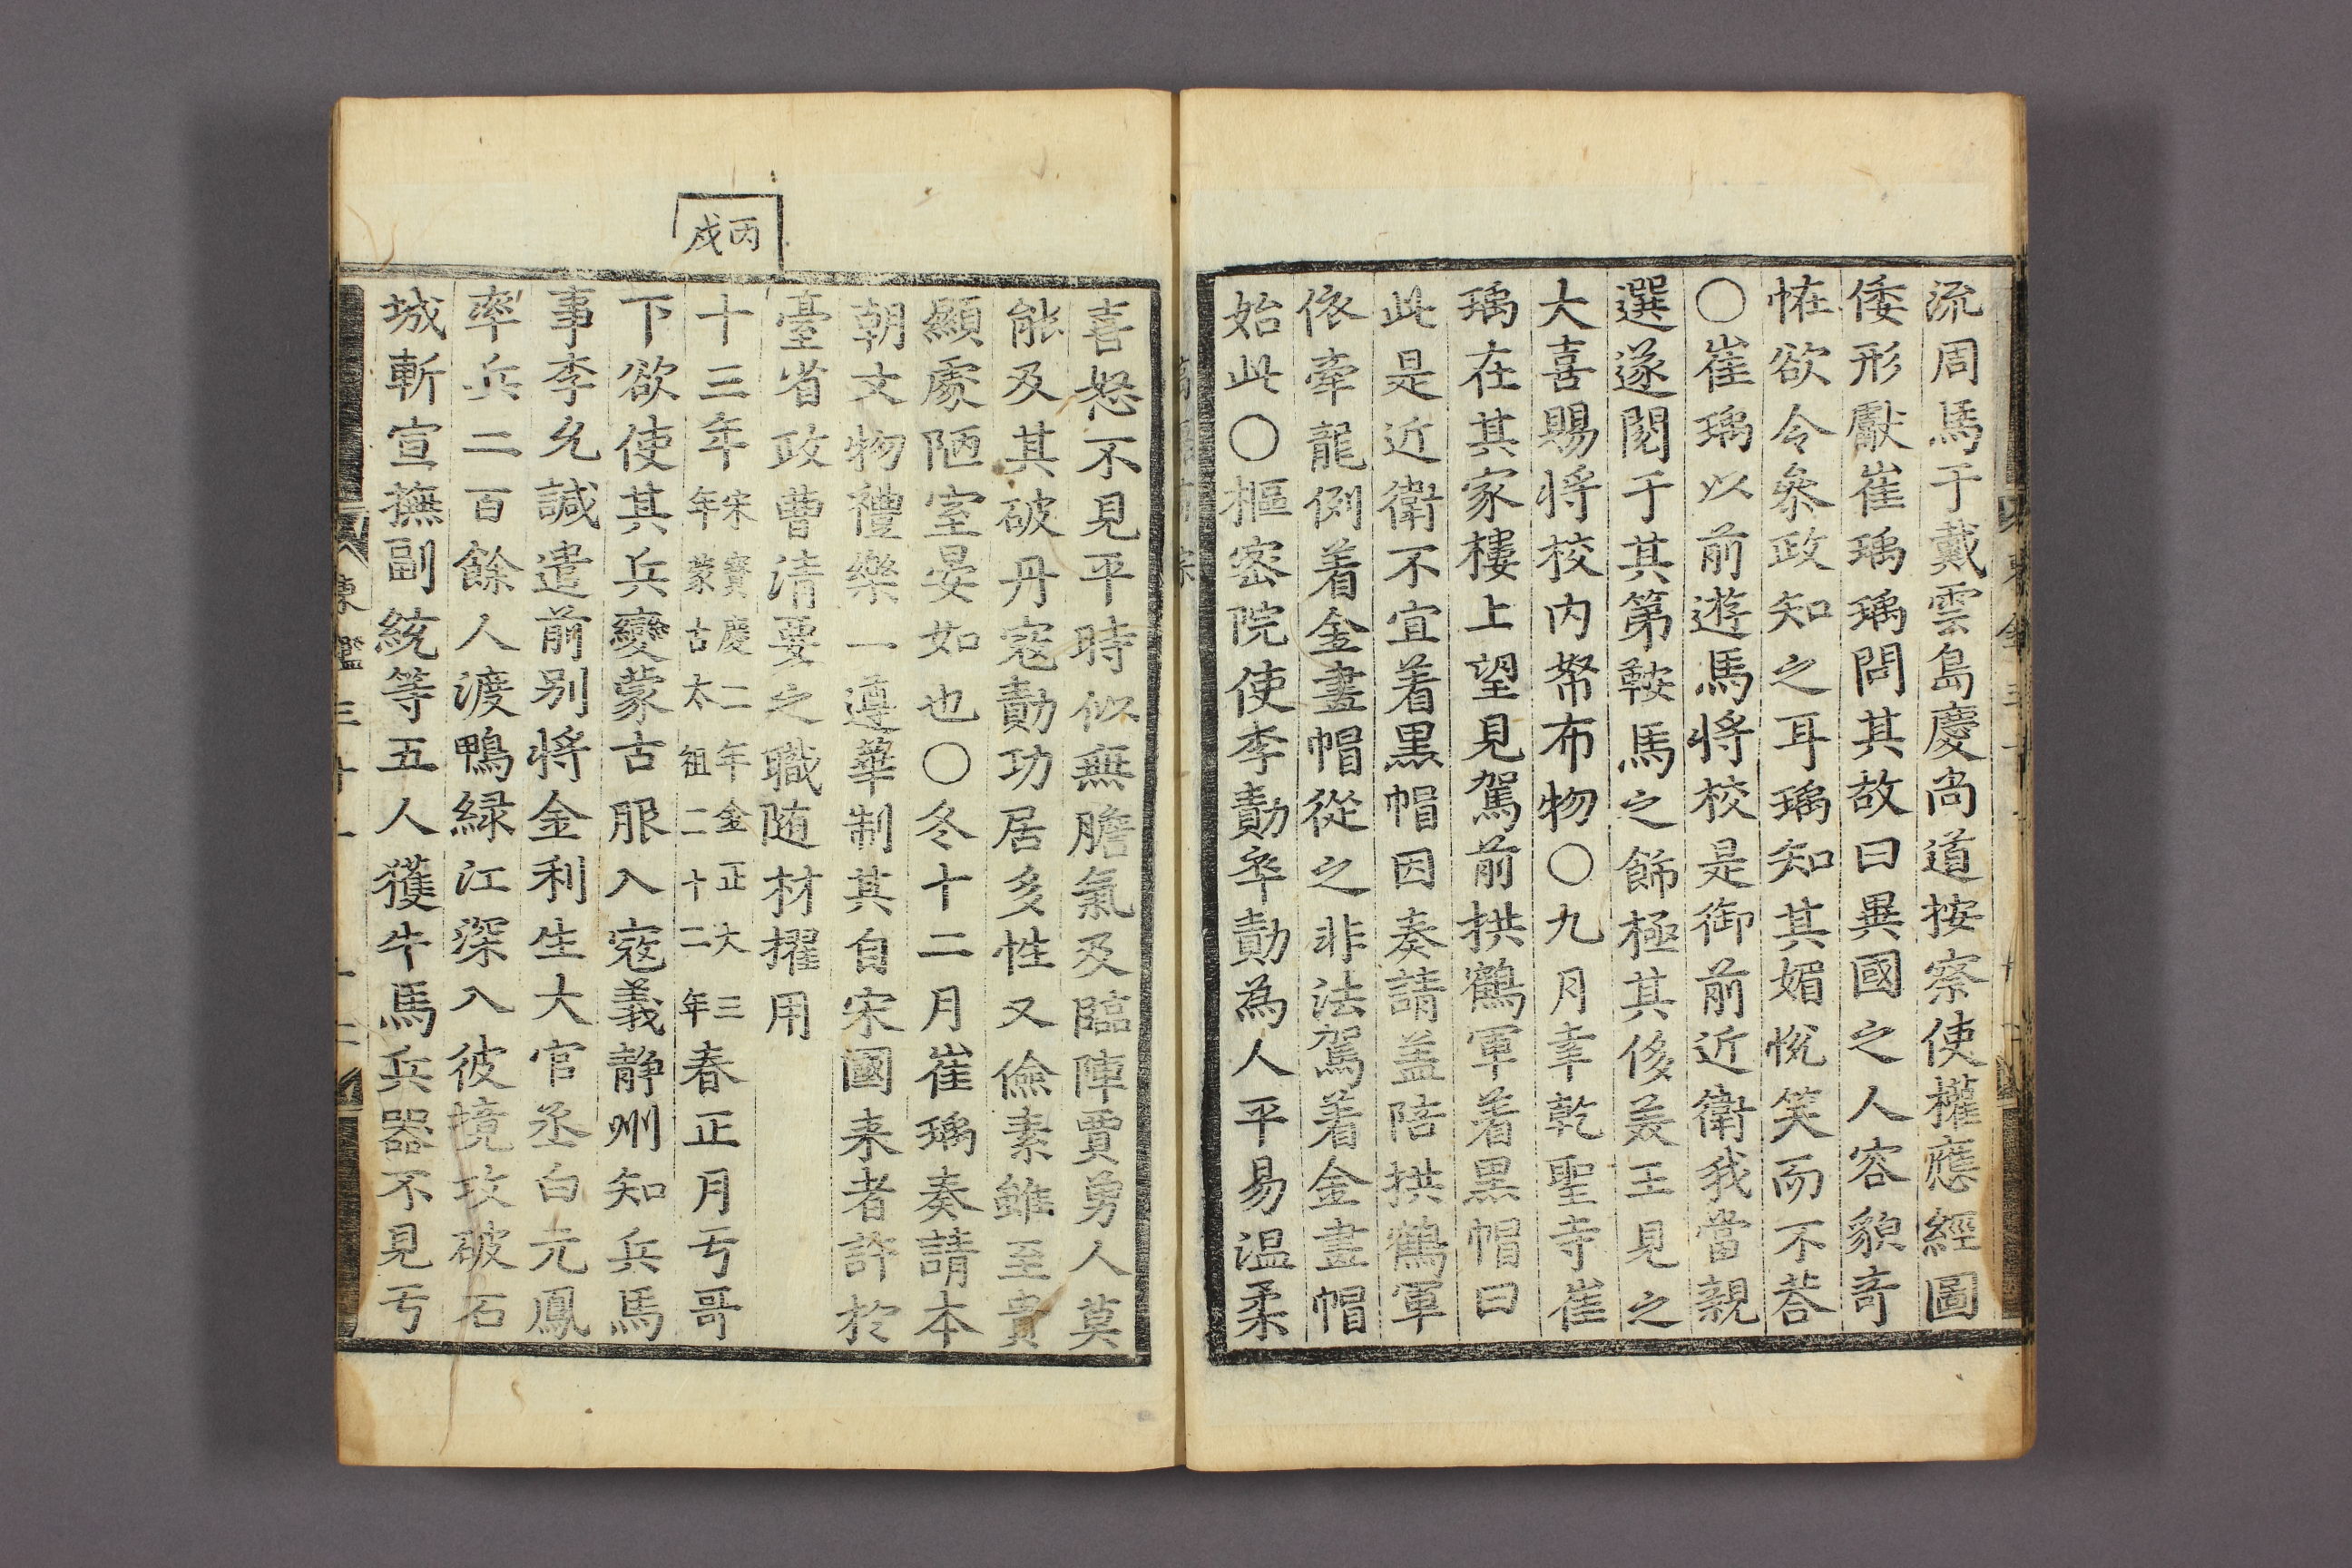 流周馬于戴雲島慶尚道按察使權應經圖
倭形獻崔瑀瑀問其故曰異國之人容貌奇
恠欲令叅政知之耳瑀知其媚悅笑而不荅
○崔瑀以前遊馬將校是御前近衛我當親
選遂閱于其第鞍馬之飾極其侈羙王見之
大喜賜將校内帑布物○九月幸乾聖寺崔
瑀在其家樓上望見駕前拱鶴軍着黒帽曰
此是近衛不宜着黒帽因奏請盖陪拱鶴軍
依牽龍例着金畫帽從之非法駕着金畫帽
始此○樞密院使李勣卒勣為人平易温柔
喜怒不見平時似無膽氣及臨陣賈勇人莫
能及其破丹寇勣功居多性又儉素雖至貴
顯處陋室晏如也○冬十二月崔瑀奏請本
朝文物禮樂一遵華制其自宋國来者許於
臺省政曹清要之職随材擢用
丙戌
十三年宋寶慶二年金正大三年蒙古太祖二十二年春正月亏哥
下欲使其兵變蒙古服入寇義静州知兵馬
事李允諴遣前别將金利生大官丞白元鳳
率兵二百餘人渡鴨緑江深入彼境攻破石
城斬宣撫副統等五人獲牛馬兵器不見亏
東鑑三十一